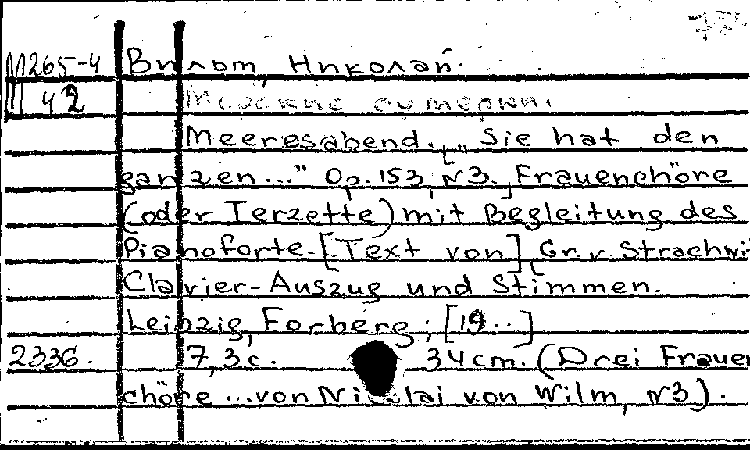 М265-4 Вильм, Николай.
42 Морские сумерки.
Meeresabend. „Sie hat den
ganzen..." Op. 153, N3. Frauenchöre
(oder Terzette) mit Begleitung des
Pianoforte. [Text von] Gr. v. Strachwi
Clavier-Auszug und Stimmen.
Leipzig, Forberg, [19..]
2336. 7,3 с. 34 cm. (Drei Frauen
chöre ...von Nicolai von Wilm, N3).